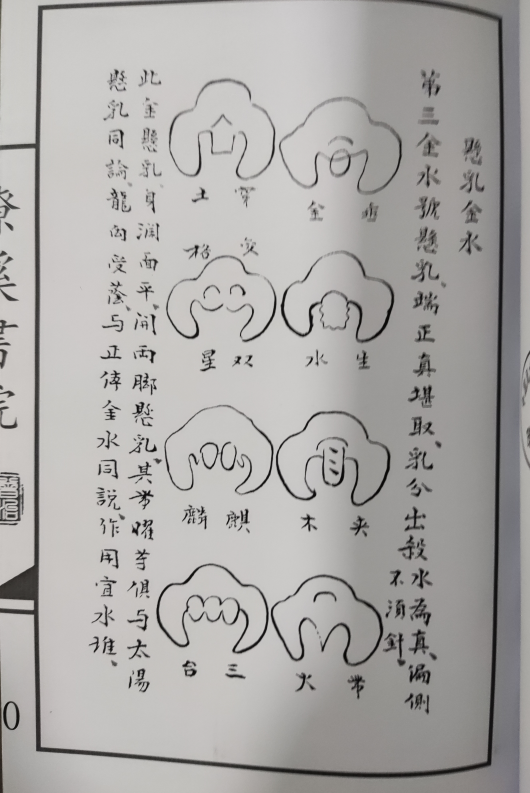 懸乳金水
第三金水號懸乳、端正真堪取、乳分出殺水為真、偏側不須針。
金
生水
夹木
帶火
穿土
变格
双星
麒麟
三台
此金懸乳、身润面平、開両脚懸乳、其帶曜芋俱与太陽
懸乳同論、龍向受蔭、与正体金水同説、作用宜水推、
溪書院
0